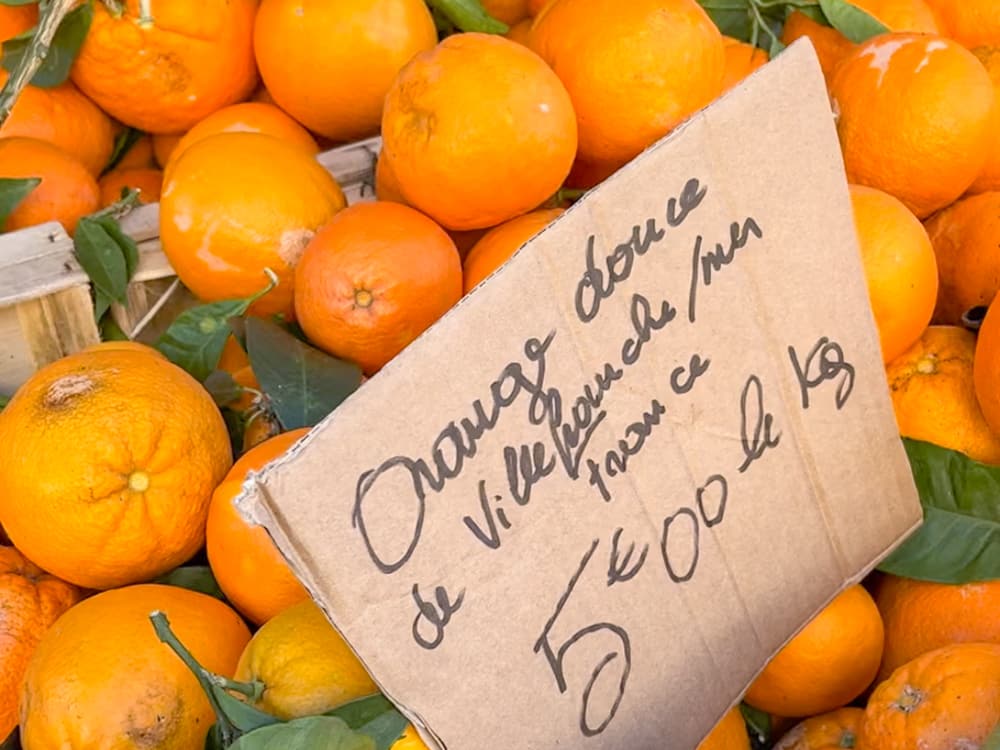 Orange douce
de Villefranche/mer
france
5€00 le kg